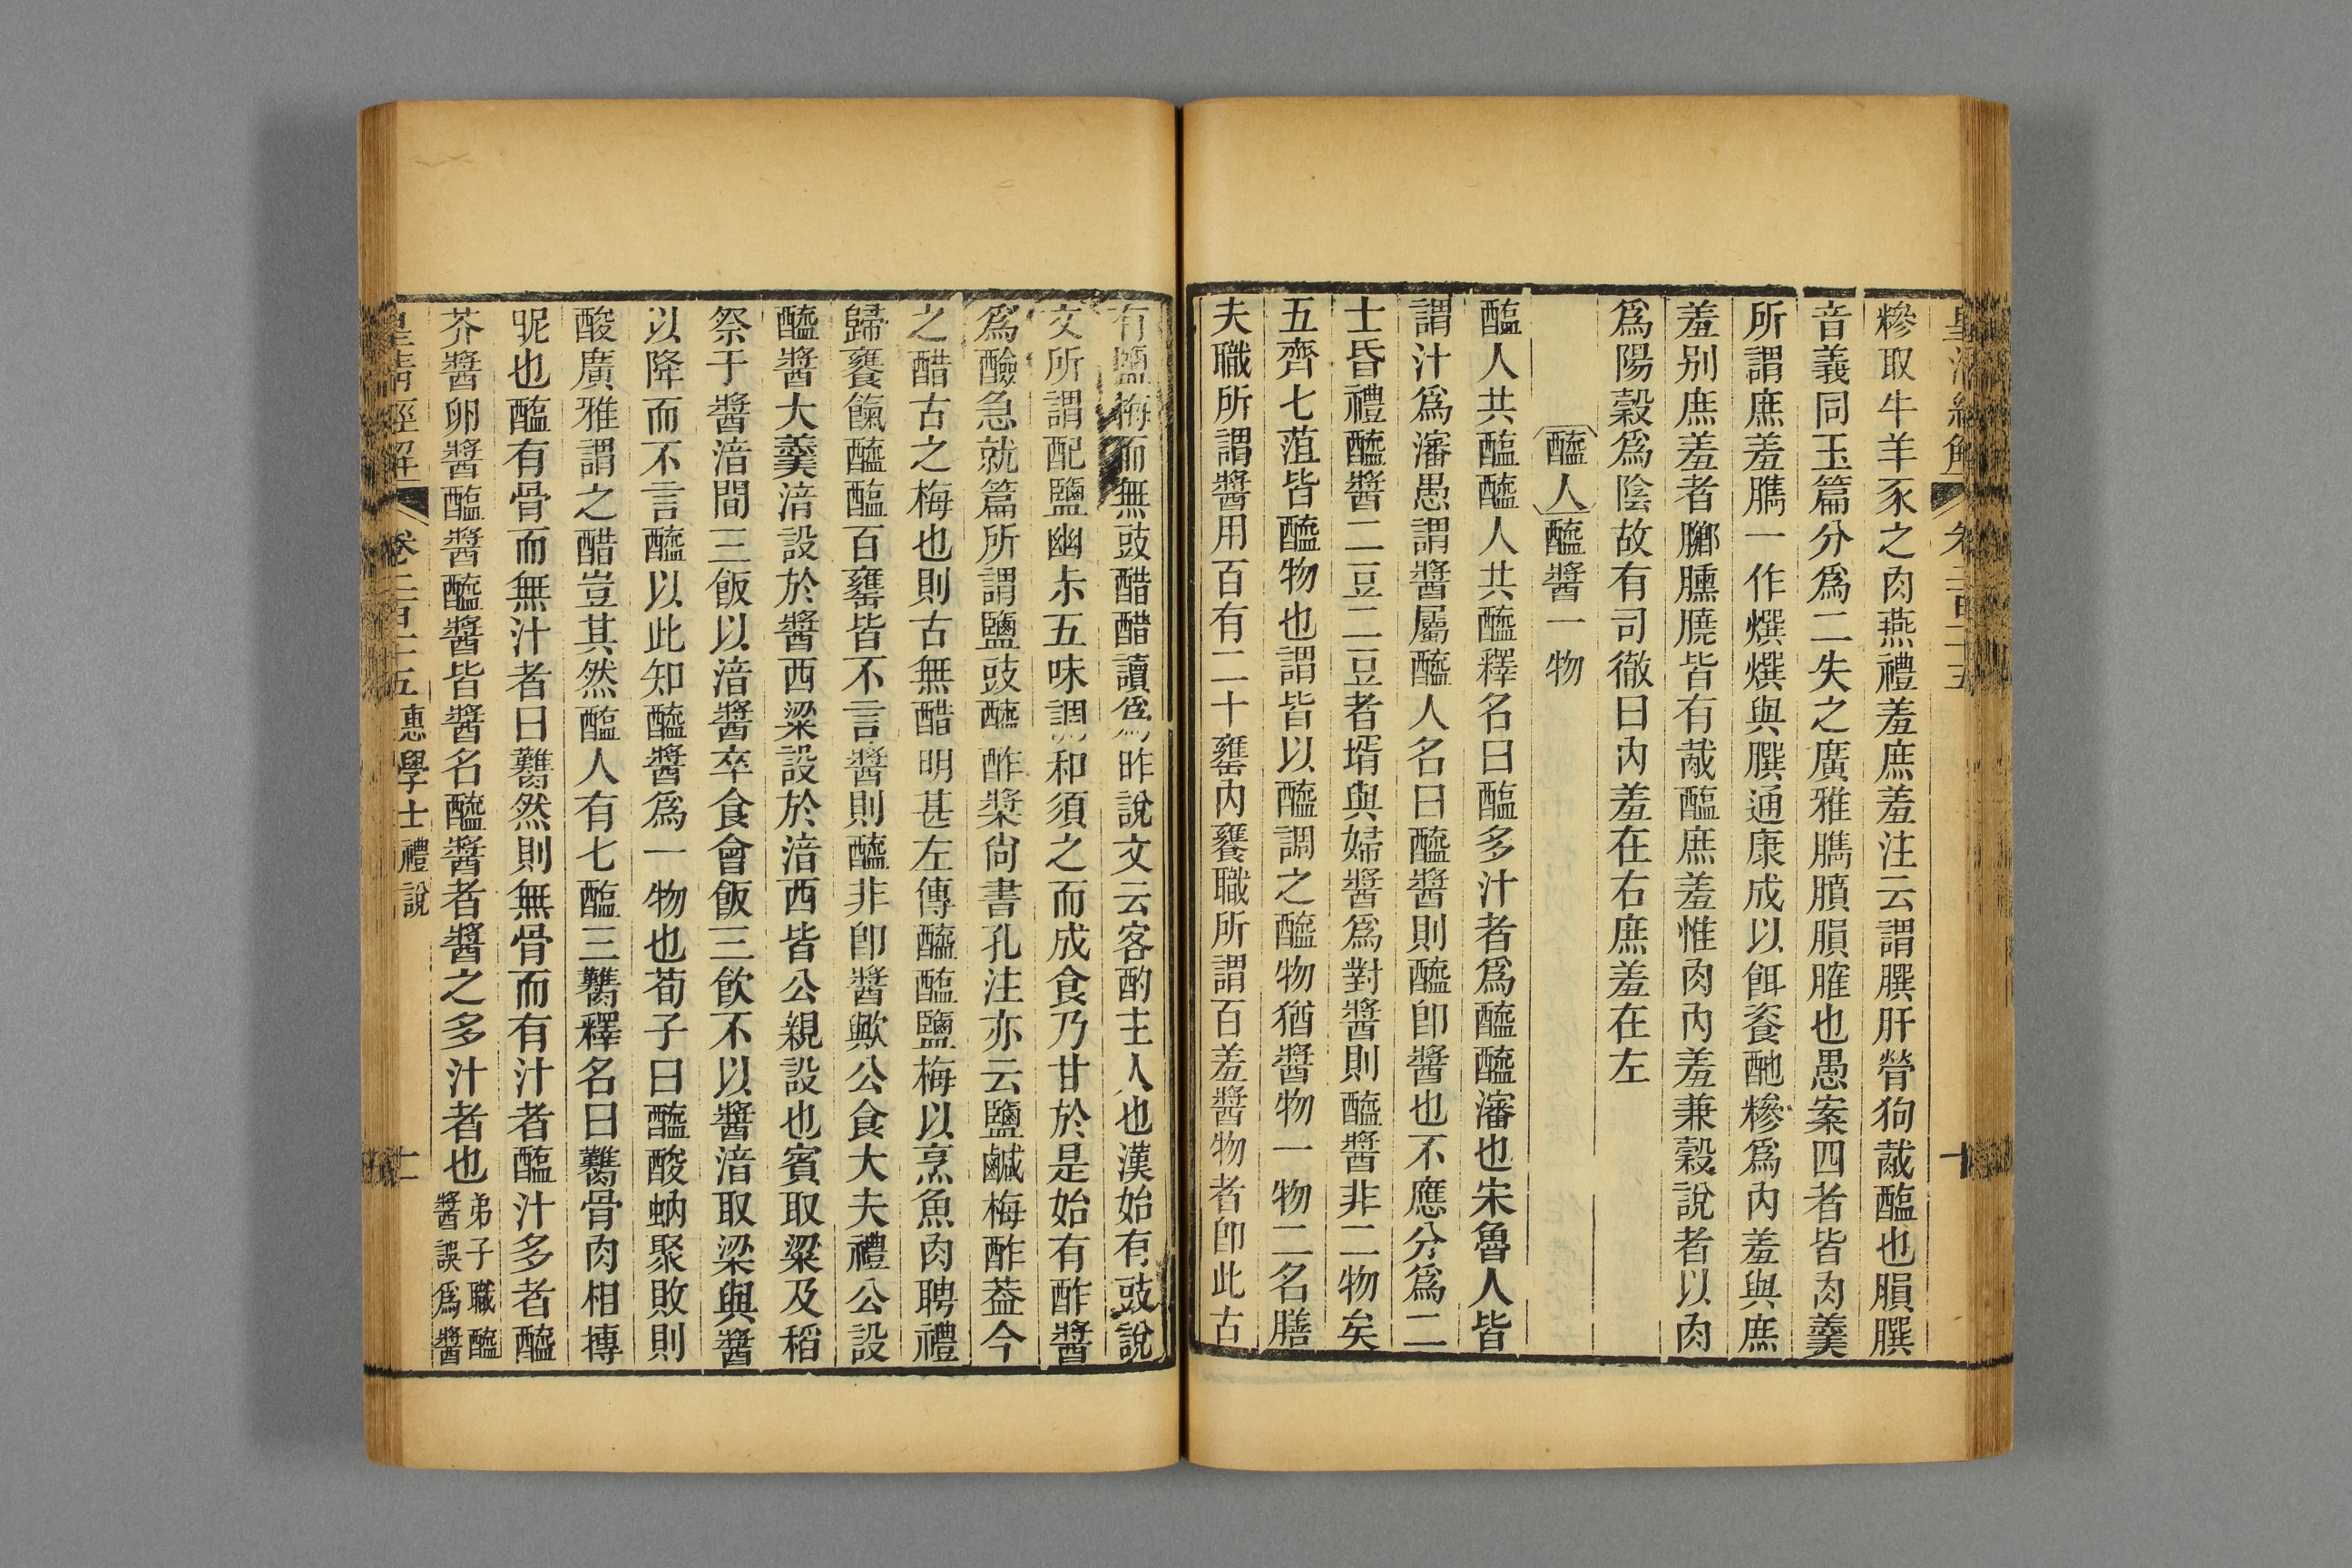 皇清經解 卷二百十五 十
糝取牛羊豕之肉燕禮羞庶羞注云謂膷肝膋狗胾醢也䐣膷
音義同玉篇分爲二失之廣雅臇䐣膹䐣脽也愚案四者皆肉羹
所謂庶羞臇一作㷷㷷與䐣通康成以餌餈酏糝爲內羞與庶
羞別庶羞者膷臐膮皆有胾醢庶羞惟肉內羞兼穀說者以肉
爲陽穀爲陰故有司徹曰內羞在右庶羞在左
醯人醯醬一物
醢人共醢醯人共醯釋名曰醢多汁者爲醯醯瀋也宋魯人皆
謂汁爲瀋愚謂醬屬醯人名曰醯醬則醯卽醬也不應分爲二
士昏禮醯醬二豆二豆者壻與婦醬爲對醬則醯醬非二物矣
五齊七菹皆醯物也謂皆以醯調之醯物猶醬物一物二名膳
夫職所謂醬用百有二十罋內饔職所謂百羞醬物者卽此古
有鹽梅而無豉醋醋讀爲昨說文云客酌主人也漢始有豉說
文所謂配鹽幽尗五味調和須之而成食乃甘於是始有酢醬
爲醶急就篇所謂鹽豉醯酢漿尙書孔注亦云鹽鹹梅酢葢今
之醋古之梅也則古無醋明甚左傳醯醢鹽梅以烹魚肉聘禮
歸饔餼醯醢百罋皆不言醬則醯非卽醬歟公食大夫禮公設
醯醬大羹湆設於醬西粱設於湆西皆公親設也賓取粱及稻
祭于醬湆間三飯以湆醬卒食會飯三飮不以醬湆取粱與醬
以降而不言醯以此知醯醬爲一物也荀子曰醯酸蚋聚敗則
酸廣雅謂之醋豈其然醢人有七醢三臡釋名曰臡骨肉相摶
昵也醢有骨而無汁者曰臡然則無骨而有汁者醢汁多者醯
芥醬卵醬醢醬醯醬皆醬名醯醬者醬之多汁者也弟子職醯
醬誤爲醬
皇清經解 卷二百十五 惠學士禮說 十一